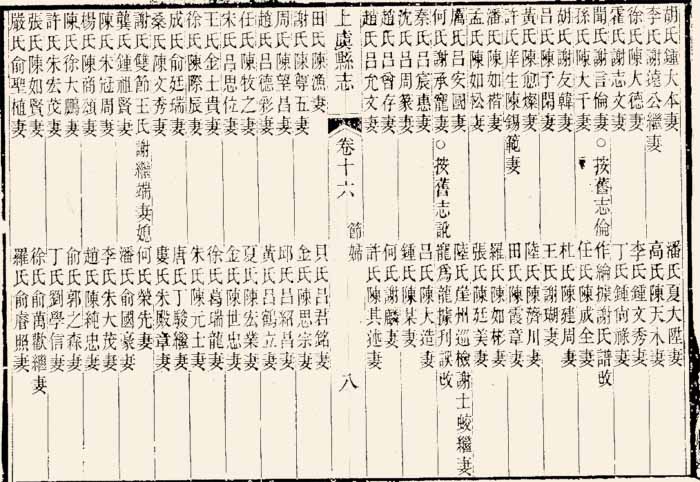 胡氏鍾大本妻　潘氏夏大陞妻
李氏謝遠公繼妻　高氏陳天木妻
徐氏陳大德妻　李氏鍾文秀妻
霍氏謝志文妻　丁氏鍾尙祿妻
聞氏謝言倫妻○按舊志倫作綸據謝氏譜改
孫氏陳大千妻　任氏陳咸全妻
胡氏謝友韓妻　杜氏陳建周妻
呂氏陳子閑妻　王氏謝瑚妻
黃氏陳愈燦妻　陸氏陳濟川妻
許氏庠生陳錫範妻　田氏陳霞章妻
潘氏陳如楷妻　羅氏陳如彬妻
孟氏陳如松妻　張氏陳廷美妻
厲氏呂安國妻　陸氏崖州巡檢謝士皎繼妻
何氏謝承龍妻○按舊志說龍爲龍據刋誤改
秦氏呂宸惠妻　呂氏陳大造妻
沈氏呂周篆妻　鍾氏陳某妻
趙氏呂曾存妻　何氏謝麟妻
趙氏呂允文妻　許氏陳其述妻
上虞縣志　卷十六　節婦　八
田氏陳漁妻　貝氏呂君銘妻
謝氏陳尊五妻　金氏陳思宗妻
周氏陳望昌妻　邱氏呂紹昌妻
趙氏呂德彩妻　黃氏呂鶴立妻
任氏陳牧之妻　夏氏陳宏業妻
宋氏呂思位妻　金氏陳世忠妻
王氏金士貴妻　徐氏葛瑞龍妻
徐氏陳際辰妻　朱氏陳元士妻
成氏俞廷瑞妻　唐氏丁駿繼妻
桑氏陳文秀妻　婁氏朱殿章妻
謝氏雙節王氏謝繼端妻媳何氏榮先妻
龔氏鍾祖賢妻　潘氏俞國豪妻
陳氏朱冠周妻　李氏朱大茂妻
楊氏陳商頌妻　趙氏陳純忠妻
陳氏徐大鵬妻　俞氏郭之森妻
許氏朱宏茂妻　丁氏劉學信妻
張氏陳如賢妻　徐氏俞萬歡繼妻
嚴氏俞聖植妻　羅氏俞睿照妻